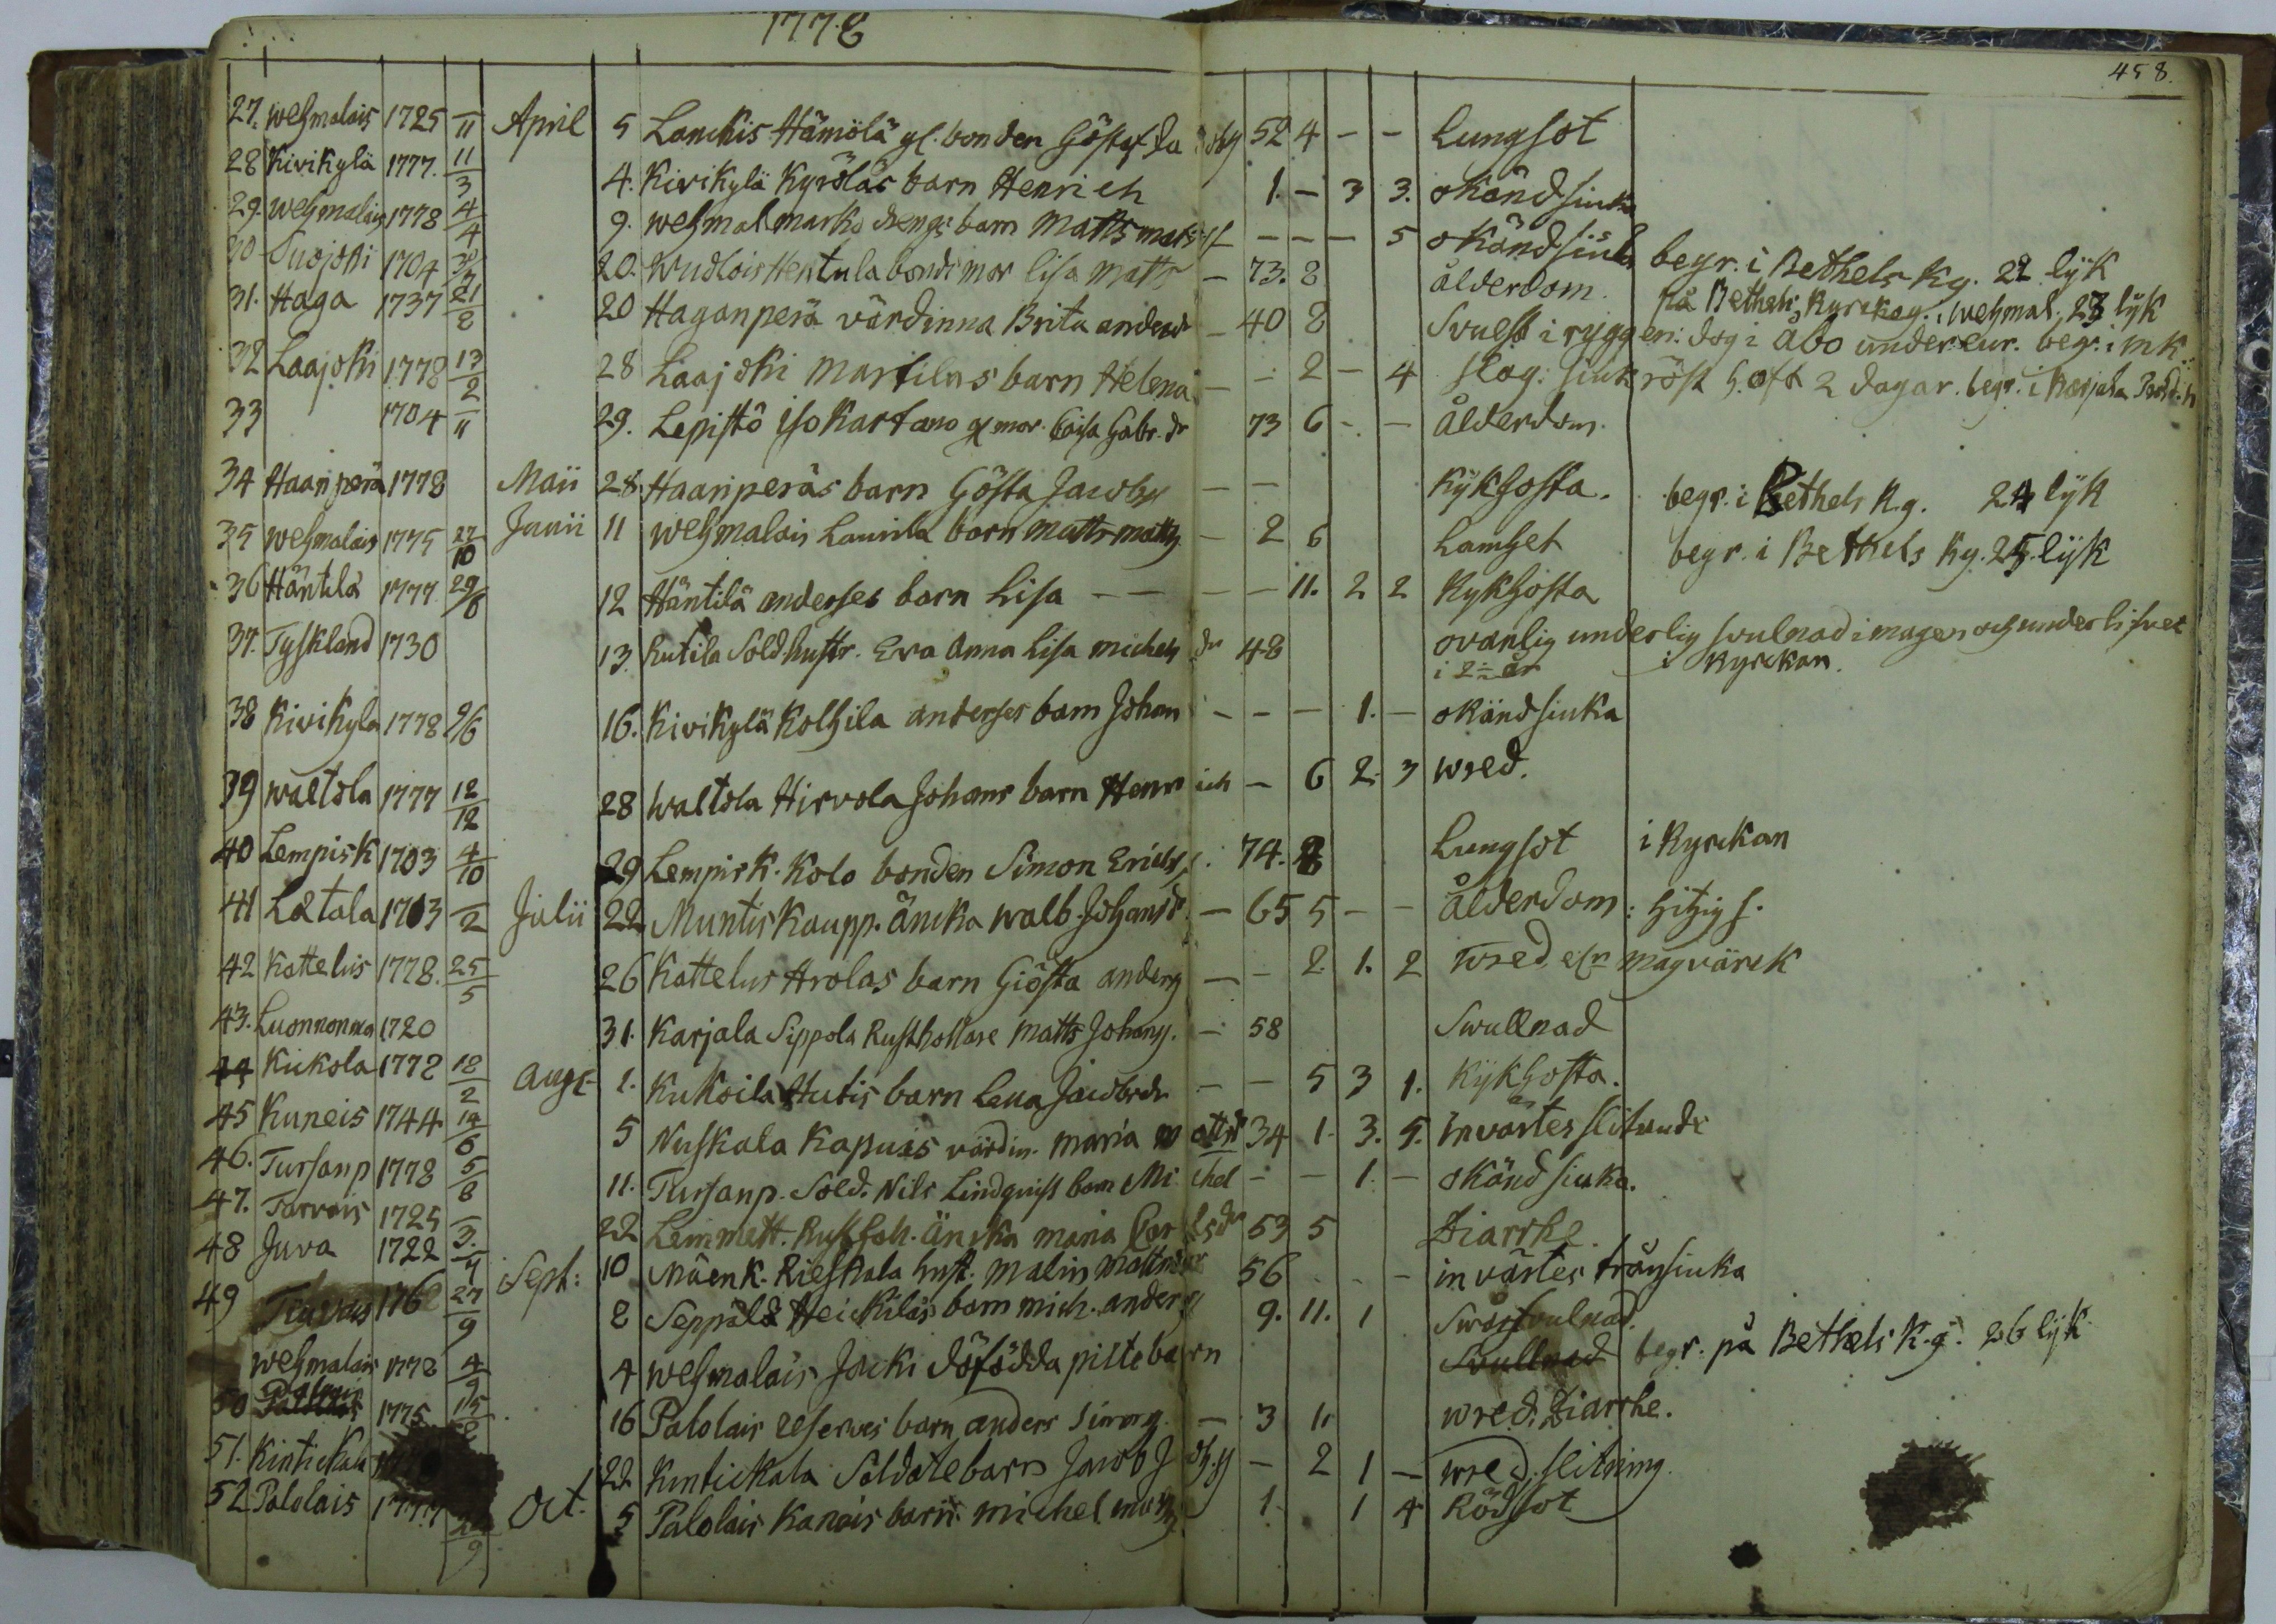 1778
458.
27. Wehmalais 1725 – 11 April 5 Lanckis Hämölä gl. bonden Göstaf Ja 52 4 – – Lungsot
28 Kivikylä 1777. 11 3 4. Kivikylä Kyröläs barn Henrich 1. – 3 3. okänd siuka
29. Wehmalais 1778 4 4 9. Wehmal marks drengs barn Matts – – – 5 okänd siuka begr. i Bethels Kg. 22 lyk
30 Suojoki 1704 20. Wudlois Hentula bondemor Lisa Matts – 73. 8 ålderdom. på Bethels Kyrckog. i Wehmal. 23 lyk
31. Haga 1737 21 8 20 Haganperä värdinna Brita anders – 40 8 Svulst i ryggen: dog i Åbo under cur. begr. i
32 Laajoki 1778 13 2 28 Laajoki Martilas barn Helena – – 2 – 4 slag: siuk röst h. oft 2 dagar. begr. i Karjala
33 1704 11 29. Lepistö Isokartano gl mor. Caisa Gabr. dr 73 6 – – ålderdom.
34 Haanperä 1778 Maii 28 Haanperäs barn Gösta Jacobs – – Kykhosta. begr. i Bethels Kg. 24 lyk
35 Wehmalais 1775 27 10 Junii 11 Wehmalais Laurila barn Matts matts – 2 6 Lamhet begr. i Bethels Kg. 25. lyk
36 Häntilä 1777 29/6 12 Häntilä anderses barn Lisa – – – – 11. 2 2 Kykhosta
37. Tyskland 1730 13. Rutila Sold hustr. Eva Anna Lisa michels dr 48 ovanlig underlig svulnad i magen och underlifvet
i 2 år i Kyrckan.
38 Kivikyla 1778 9/6 16. Kivikylä Kolhila anderses barn Johan – – – 1. – okänd siuka
39 Waltola 1777 12 12 28 Waltola Hirvola Johans barn Henrich – 6 2. 3 Wred.
40 Lempisk 1703 4 10 29 Lempisk. Kolo bonden Simon Erichs 74. 8 Lungsot i Kyrckan
41 Latala 1713 – 2 Julii 22 Muntis Kaupp. äncka Walb. Johansd. – 65 5 – – ålderdom: hitzig f.
42 Kattelus 1778. 25 5 26 Kattelus Arolas barn Giösta anders – – 2. 1. 2 Wred el. magvärck
43. Luonnonma 1720 31. Karjala Sippola Rusthollare Matts Johans. – 58 Swullnad
44 Kukola 1778 18 2 aug: 1. Kukoila Hutis barn Lena Jacobsdr – – 5 3 1. Kykhosta.
45 Kuneis 1744 14 6 5 Nuskala Kapuis värdin. Maria mattsdr 34 1. 3. 5. invärtes slitande
46. Tursanp 1778 5 8 11. Tursanp. Sold. Nils Lindqvist barn Michel – – 1. – okänd siuka.
47. Tarvais 1725 – 3. 22 Lemmett. Rusthh. Äncka maria Carlsdr 53 5 Diarrhe.
48 Juva 1722 4 Sept: 10 Mäenk. Rieskala hust. Malin Mattsdr 56 – – invärtes trånsiuka
49 Tiavais 176 27 9 2 Seppälä Heickiläs barn mich. anders 9. 11. 1 Svår svulnad.
Wehmalais 1778 4 9 4 Wehmalais Jacki dösfödda pilte barn Svullnad begr. på Bethels K.g. 26 lyk
50 Palolais 1775 15 8 16 Palolais reserves barn anders Simons. – 3 1. Wred. Diarrhe.
51. Kintickala 22 Kintickala Soldate barn Jacob Joh. – 2 1 – Wred. slitning.
52 Palolais 1777 9 Oct. 5 Palolais Kanais barn michel 1. 1 4 Rödsot